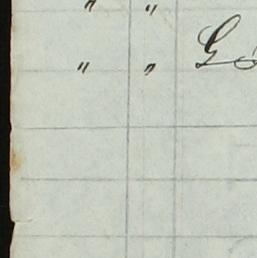 " "
" " G